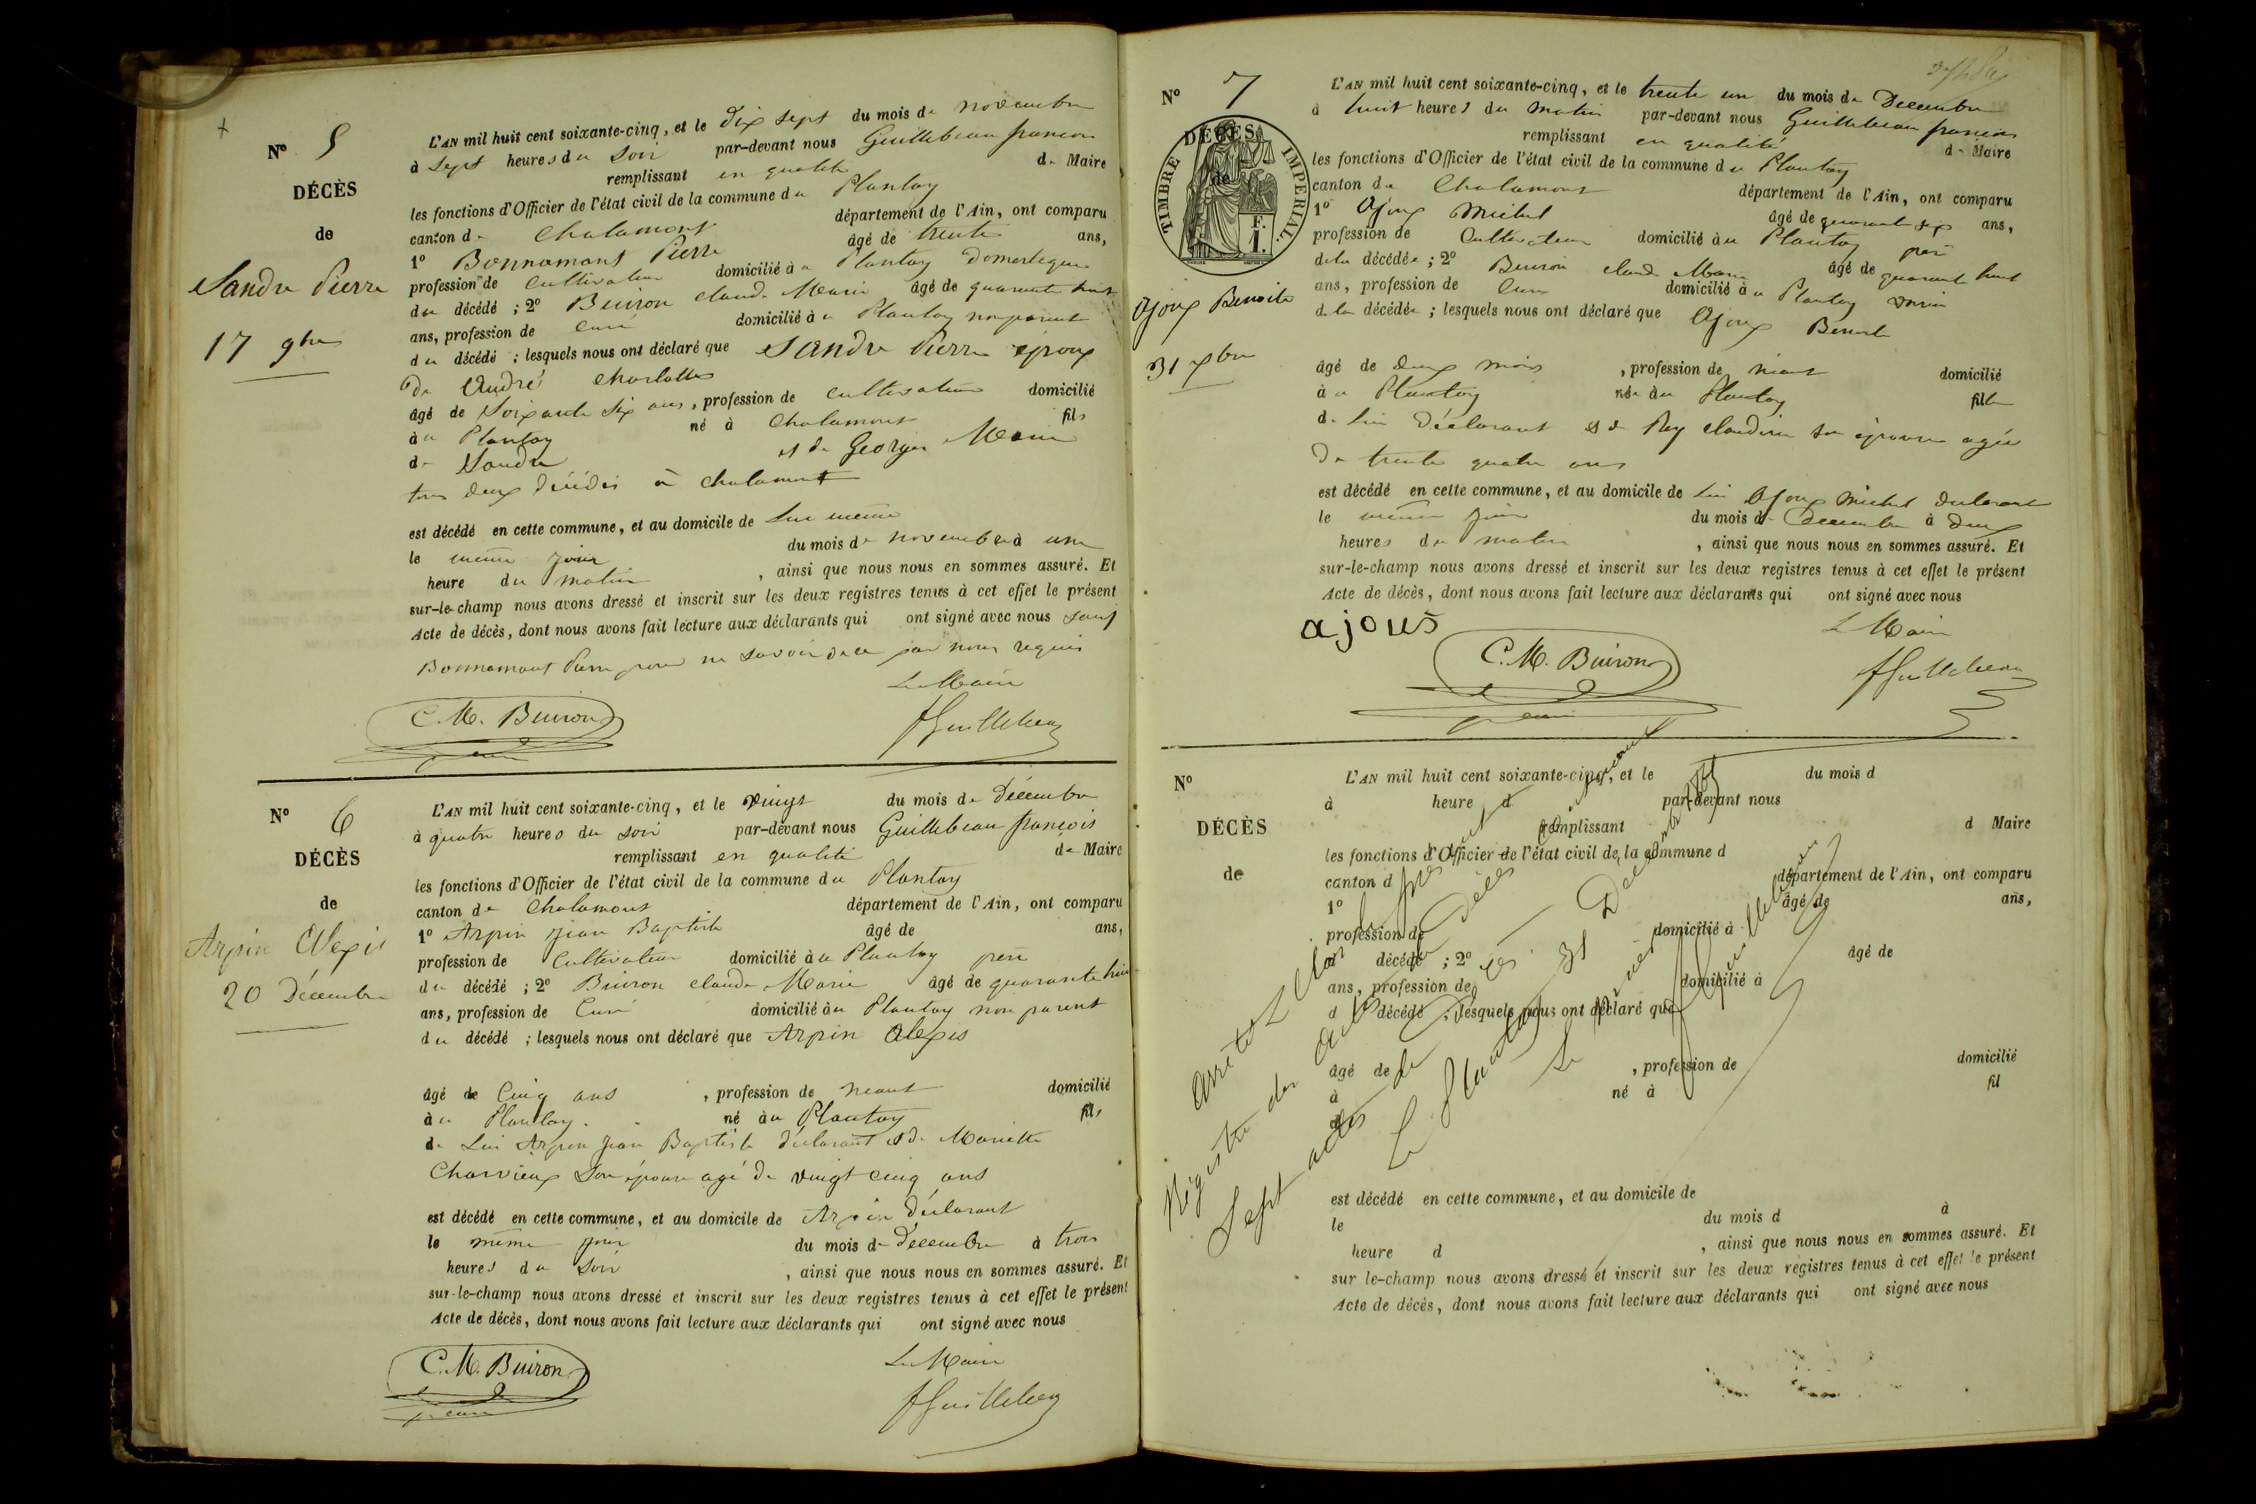 N° 5
DÉCÈS
de
Sandre Pierre
17 9bre
L'AN mil huit cent soixante-cinq, et le dix sept du mois de novembre
à sept heures du soir par-devant nous Guillebeau françois
remplissant en qualité de Maire
les fonctions d'Officier de l'état civil de la commune du Plantay
canton de Chalamont département de l'Ain, ont comparu
1° Bonnamant Pierre âgé de trente ans,
profession de cultivateur domicilié à u Plantay domestique
du décédé ; 2° Buiron claude Marie âgé de quarante huit
ans, profession de curé domicilié à u Plantay non parent
du décédé ; lesquels nous ont déclaré que Sandre Pierre époux
de André charlotte
âgé de soixante six ans, profession de cultivateur domicilié
à u Plantay né à Chalamont fils
de Sandre et de Georges Marie
tous deux décédés à chalamont
est décédé en cette commune, et au domicile de lui même
le même jour du mois de novembre à une
heure du matin , ainsi que nous nous en sommes assuré. Et
sur-le-champ nous avons dressé et inscrit sur les deux registres tenus à cet effet le présent
Acte de décès, dont nous avons fait lecture aux déclarants qui ont signé avec nous sauf
Bonnamant Pierre pour ne savoir de ce par nous requis
Le Maire
C. M. Buiron
curé
f Guillebeau
N° 6
DÉCÈS
de
Arpin Alexis
20 Décembre
L'AN mil huit cent soixante-cinq, et le vingt du mois de décembre
à quatre heures du soir par-devant nous Guillebeau françois
remplissant en qualité de Maire
les fonctions d'Officier de l'état civil de la commune du Plantay
canton de Chalamont département de l'Ain, ont comparu
1° Arpin jean Baptiste âgé de ans,
profession de cultivateur domicilié à u Plantay père
du décédé ; 2° Buiron claude Marie âgé de quarante huit
ans, profession de Curé domicilié à u Plantay non parent
du décédé ; lesquels nous ont déclaré que Arpin Alexis
âgé de Cinq ans , profession de néant domicilié
à u Plantay. né au Plantay fils
de Lui Arpin jean Baptiste déclarant et de Mariette
Charvieux son épouse agé de vingt cinq ans
est décédé en cette commune, et au domicile de Arpin déclarant
le même jour du mois de décembre à trois
heures du soir , ainsi que nous nous en sommes assuré. Et
sur-le-champ nous avons dressé et inscrit sur les deux registres tenus à cet effet le présent
Acte de décès, dont nous avons fait lecture aux déclarants qui ont signé avec nous
Le Maire
C. M. Buiron
curé
f Guillebeau
N° 7
DÉCÈS
de
TIMBRE IMPÉRIAL.
F.
1.
ajoux Benoite
31 xbre
L'AN mil huit cent soixante-cinq, et le trente un du mois de Decembre
à huit heures du matin par-devant nous Guillebeau francois
remplissant en qualité de Maire
les fonctions d'Officier de l'état civil de la commune du Plantay
canton de Chalamont département de l'Ain, ont comparu
1° Ajoux Michel âgé de quarante six ans,
profession de Cultivateur domicilié à u Plantay père
de la décédée ; 2° Buiron claude Marie âgé de quarante huit
ans, profession de Curé domicilié à u Plantay voisin
de la décédée ; lesquels nous ont déclaré que Ajoux Benoite
âgé de deux mois , profession de néant domicilié
à u Plantay née au Plantay fille
de lui déclarant et de Rey claudine son épouse agée
de trente quatre ans
est décédé en cette commune, et au domicile de lui Ajoux Michel declarant
le même jour du mois de Decembre à deux
heures du matin , ainsi que nous nous en sommes assuré. Et
sur-le-champ nous avons dressé et inscrit sur les deux registres tenus à cet effet le présent
Acte de décès, dont nous avons fait lecture aux déclarants qui ont signé avec nous
ajous
Le Maire
C. M. Buiron
curé
f Guillebeau
N°
DÉCÈS
de
L'AN mil huit cent soixante-cinq, et le du mois d
à heure d par-devant nous
remplissant d Maire
les fonctions d'Officier de l'état civil de la commune d
canton d département de l'Ain, ont comparu
1° âgé de ans,
profession de domicilié à
d décédé ; 2° âgé de
ans, profession de domicilié à
d décédé ; lesquels nous ont déclaré que
âgé de , profession de domicilié
à né à fil
d
est décédé en cette commune, et au domicile de
le du mois d à
heure d , ainsi que nous nous en sommes assuré. Et
sur le-champ nous avons dressé et inscrit sur les deux registres tenus à cet effet le présent
Acte de décès, dont nous avons fait lecture aux déclarants qui ont signé avec nous
Arrêté et clos le présent
Régistre des actes de décès
Sept actes
Le Plantay 31 Decembre 1865
Le Maire
f Guillebeau